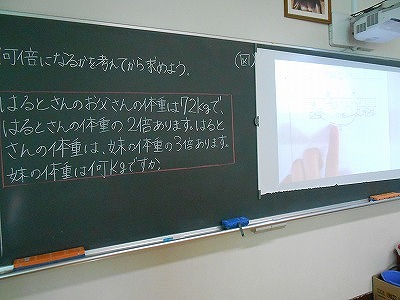 何倍になるかを考えてから求めよう。
(図)
はるとさんのお父さんの体重は72kgで、
はるとさんの体重の2倍あります。はると
さんの体重は、妹の体重の3倍あります。
妹の体重は何kgですか。